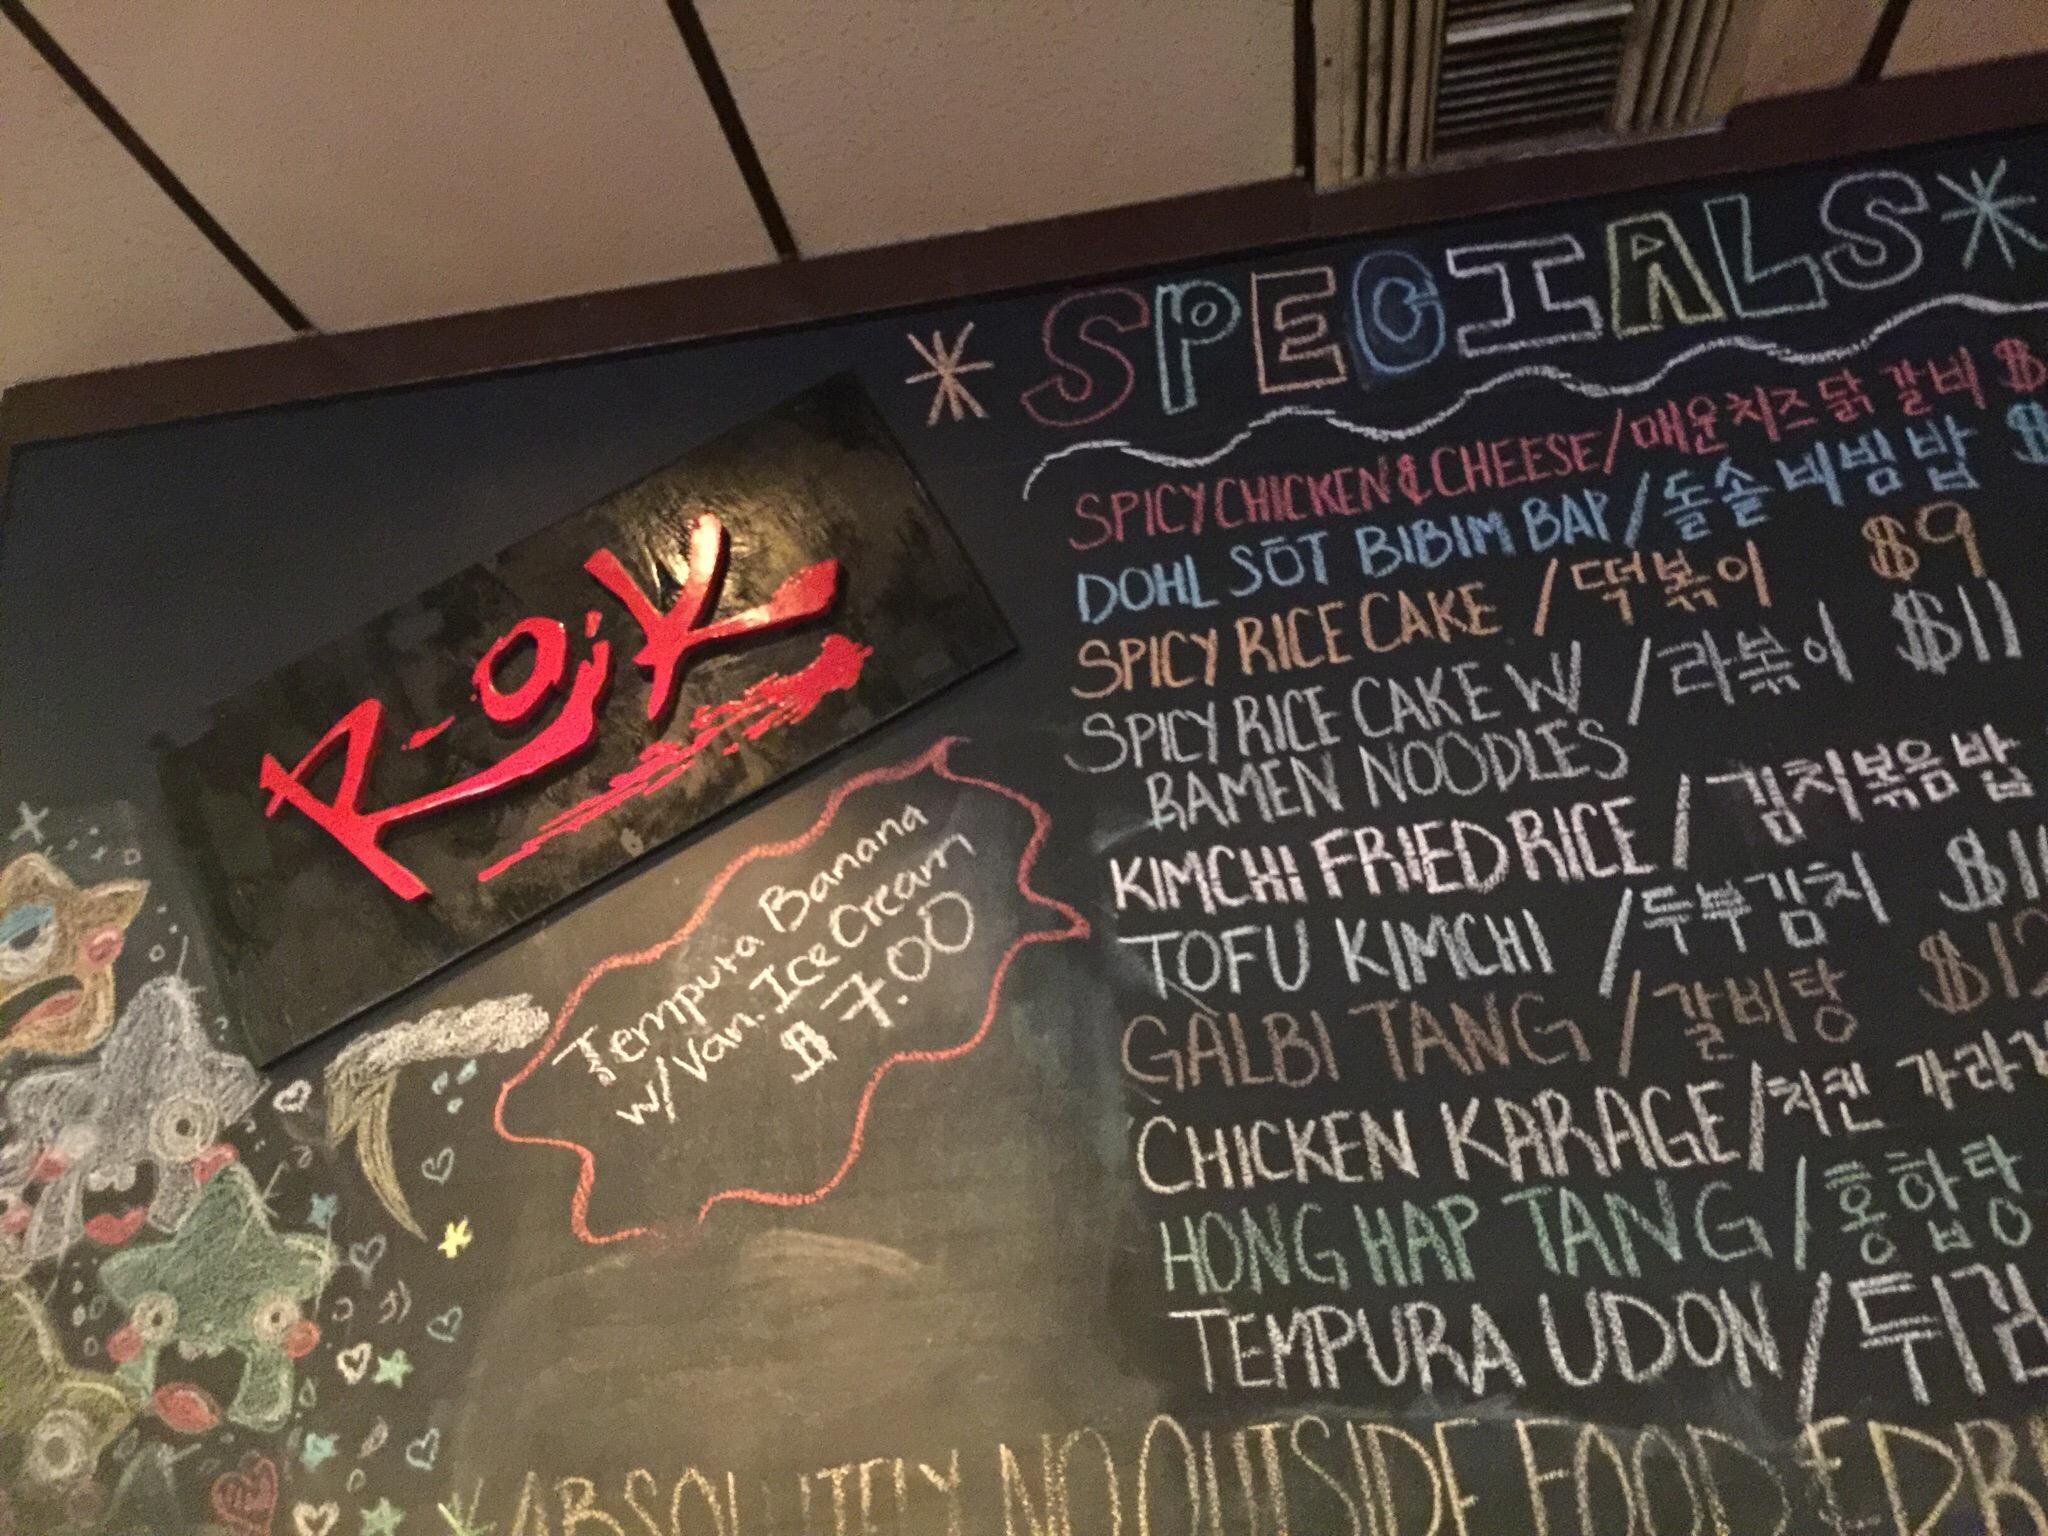 R-oik
* SPECIALS *
SPICY CHICKEN & CHEESE / 매운치즈닭갈비 $
DOHL SŌT BIBIM BAP / 돌솥비빔밥 $
SPICY RICE CAKE / 떡볶이 $9
SPICY RICE CAKE W/ / 라볶이 $11
RAMEN NOODLES
KIMCHI FRIED RICE / 김치볶음밥
TOFU KIMCHI / 두부김치
GALBI TANG / 갈비탕 $12
CHICKEN KARAGE / 치킨 가라
HONG HAP TANG / 홍합탕
TEMPURA UDON / 튀김
Tempura Banana
w/ Van. Ice Cream
$7.00
ABSOLUTELY NO OUTSIDE FOOD